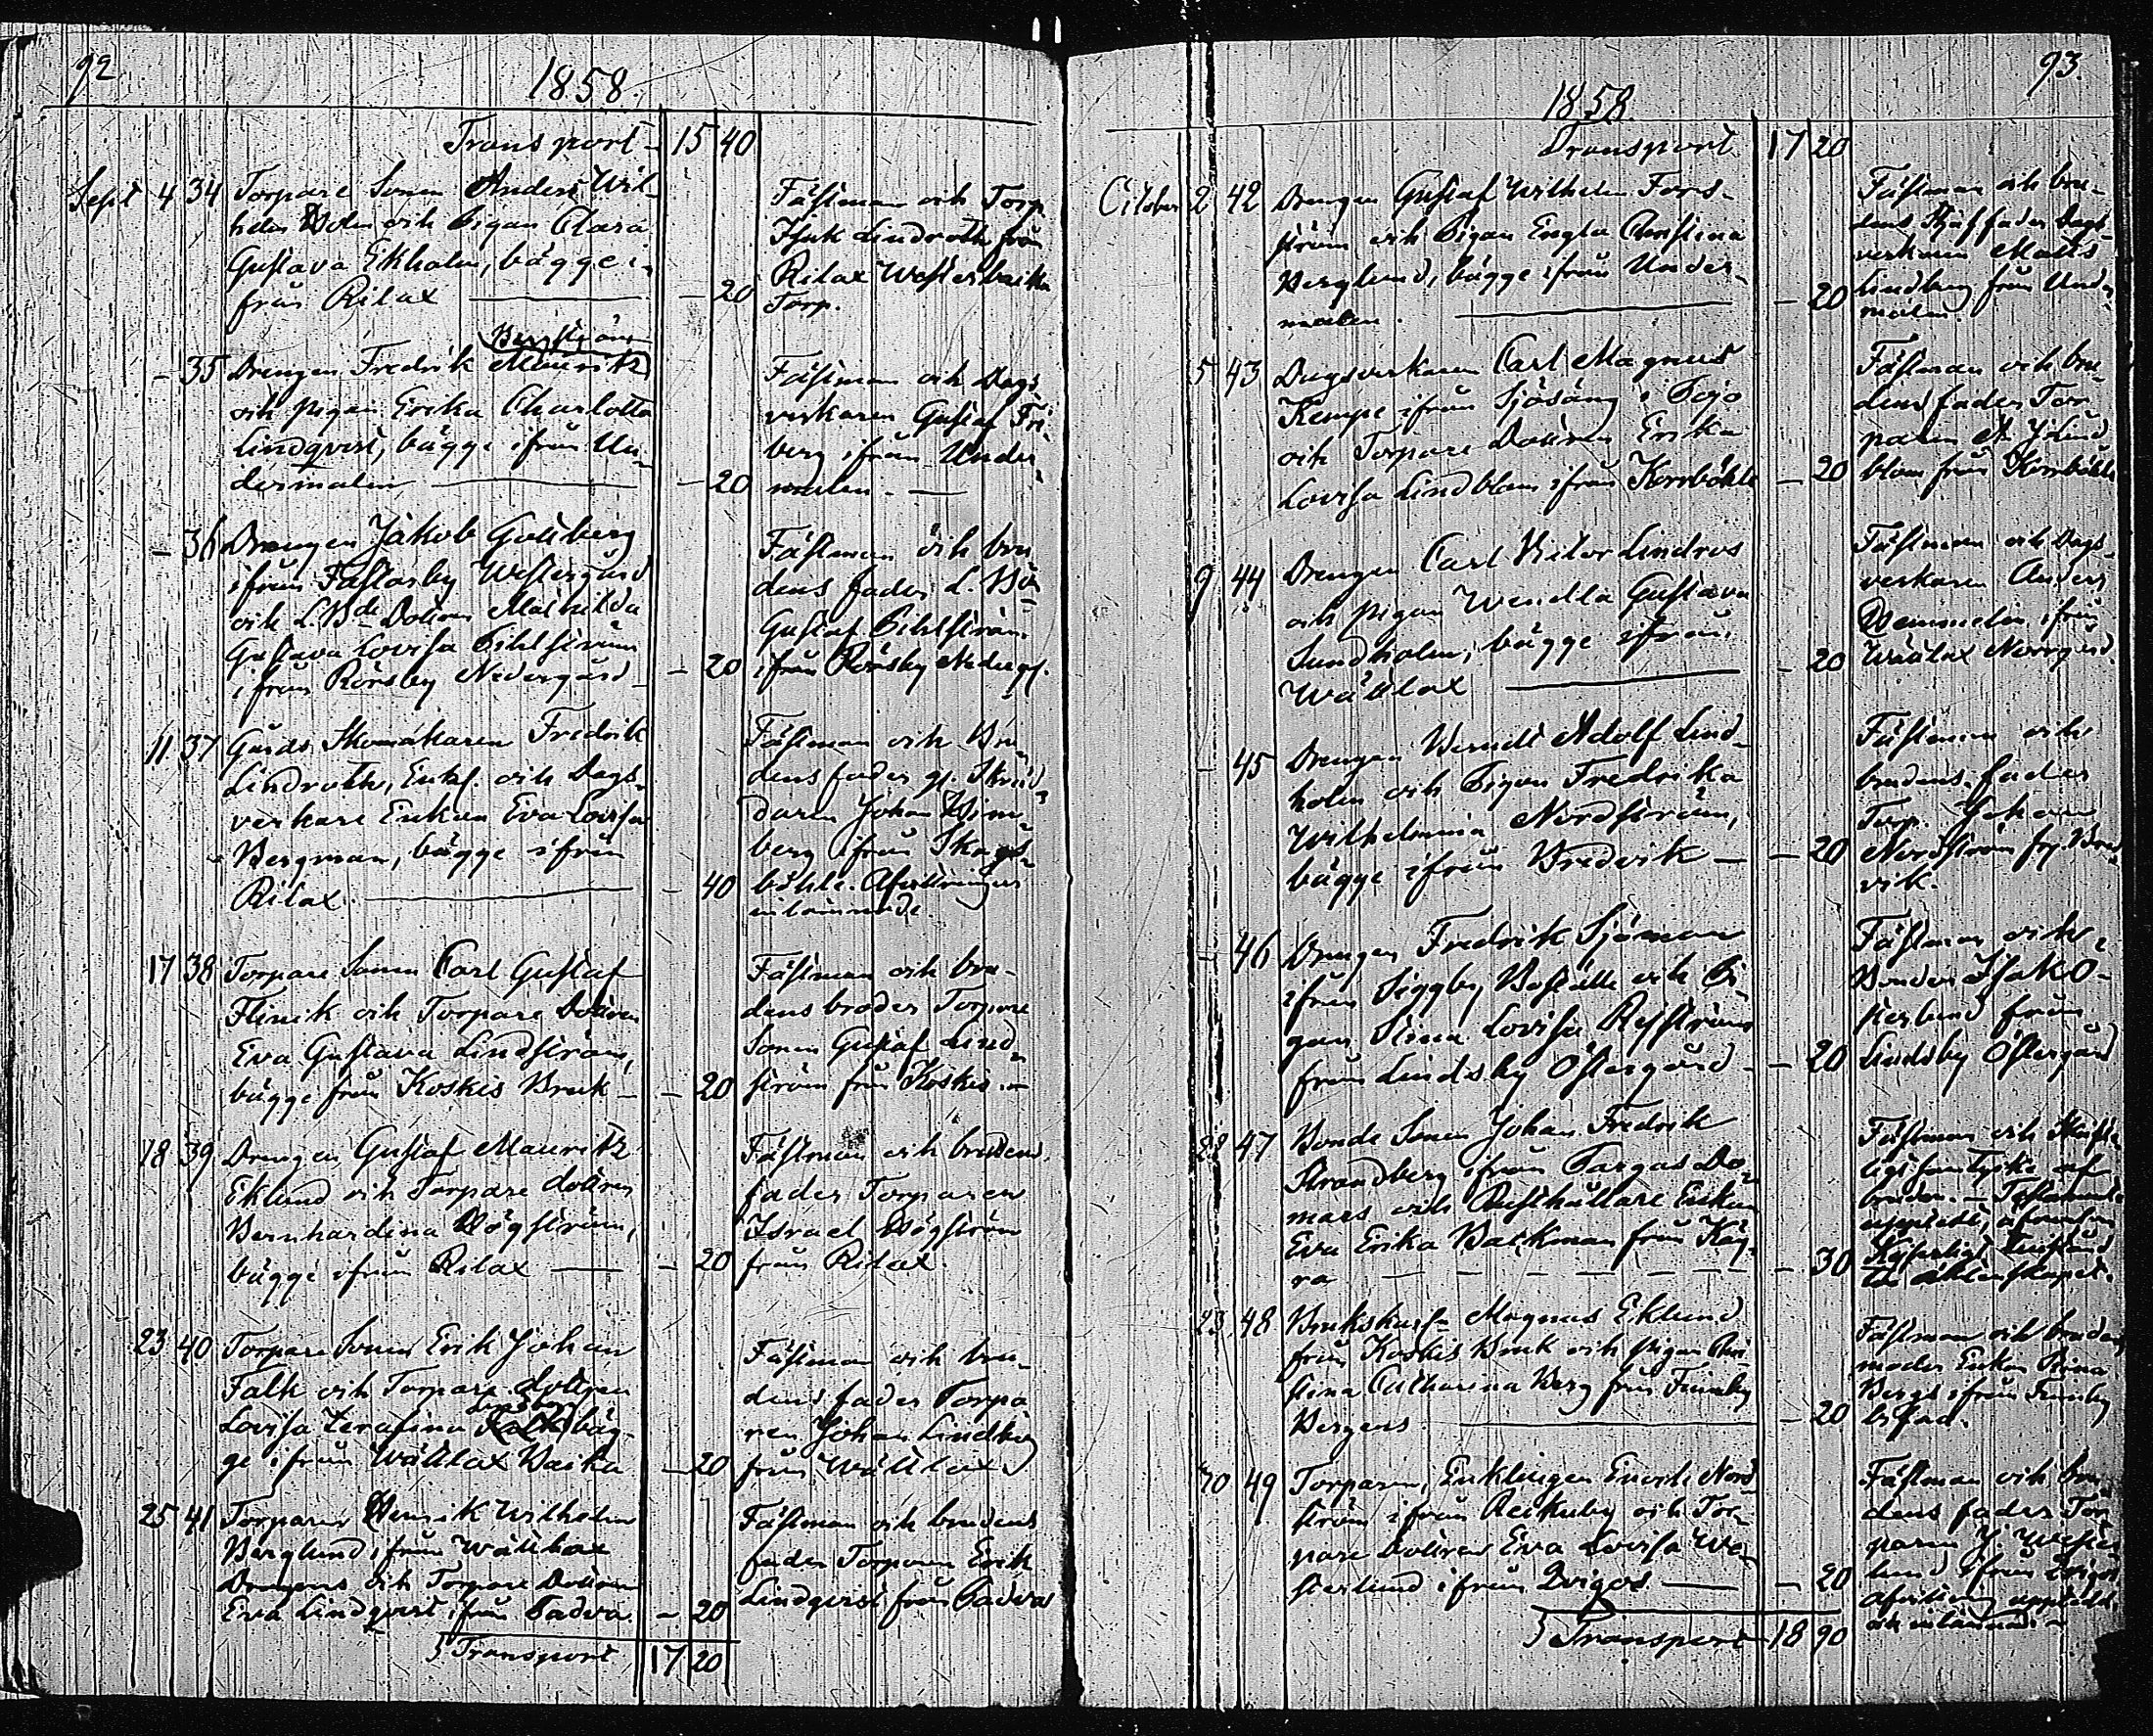 92
1858.
Transport 15 40
Sept 4 34 Torpare Sonen Anders Wil-
helm Holm och Pigan Clara
Gustava Ekholm, bägge i-
från Rilax — 20
Fästman och Torp.
Isak Lindroth från
Rilax Westerbacka
Torp.
Bergström
- 35 Drengen Fredrik Mauritz
och pigan Erika Charlotta
Lindqvist, bägge ifrån Un-
dermalm — 20
Fästman och Dags-
verkaren Gustaf Fri-
berg ifrån Under-
malm. —
- 36 Drengen Jakob Gottberg
ifrån Fastarby Westergård
och L.Bde Dottren Mathilda
Gustava Lovisa Pihlström
ifrån Rörsby Nedergård — 20
Fästman och bru
dens fader L. Bo
Gustaf Pihlström
ifrån Rörsby Nedergd.
11 37 Gårds Skomakaren Fredrik
Lindroth, Enkl. och Dags-
verkare Enkan Eva Lovisa
Bergman, bägge ifrån
Rilax. — 40
Fästman och Bru-
dens fader gl. Skräd-
daren Johan Wim-
berg ifrån Skogs-
böhle. Afvittringen
inlämnade.
17 38 Torpare Sonen Carl Gustaf
Flinck och Torpare Dottren
Eva Gustava Lindström,
bägge från Koskis Bruk — 20
Fästman och bru-
dens broder Torpare
Sonen Gustaf Lind-
ström från Koskis. —
18 39 Drengen Gustaf Mauritz
Eklund och Torpare dottren
Bernhardina Högström,
bägge ifrån Rilax — 20
Fästman och brudens
fader Torparen
Israel Högström
från Rilax.
23 40 Torpare Sonen Erik Johan
Falk och Torpare dottren
Lovisa Serafina bäg-
ge ifrån Wättlax Backa — 20
Fästman och bru-
dens fader Torpa
ren Johan Lindberg
från Wättlax
25 41 Torparen Henrik Wilhelm
Berglund, från Wättlax
och Torpare Dottren
Eva Lindqvist ifrån Padva — 20
Fästman och brudens
fader Torparen Erik
Lindqvist från Padva
Transport 17 20
93.
1858.
Transport 17 20
October 2 42 Drengen Gustaf Wilhelm Fors-
ström och Pigan Engla Christina
Berglund, bägge ifrån Under-
malm. — 20
Fästman och bru-
dens Styffader Dags-
verkaren Matts
Lindberg från Under
malm.
5 43 Dagsverkaren Carl Magnus
Kempe ifrån Sjösäng i Pojo
och Torpare Dottren Erika
Lovisa Lindblom ifrån Kornböhle — 20
Fästman och bru-
dens fader Tor
paren A. J. Lind
blom från Kornböhle
9 44 Drengen Carl Victor Lindros
och pigan Wendla Gustava
Sundholm, bägge ifrån
Wättlax — 20
Fästman och Dags-
verkaren Anders
Hemmelin, ifrån
Wättlax Norrgård.
- 45 Drengen Berndt Adolf Lind-
holm och Pigan Fredrika
Wilhelmina Nordström,
bägge ifrån Bredvik — 20
Fästman och
brudens fader
Torp. Johan
Nordström fr. Bred
vik.
- 46 Drengen Fredrik Sjöman
ifrån Siggby Boställe och Pi-
gan Stina Lovisa
från Lindsby Östergård — 20
Fästman och
Bonden Isak
från
Lindsby Östergård
22 47 Bonde Sonen Johan Fredrik
Strandberg ifrån Pargas Do-
mars och Rusthållare Enkan
Eva Erika Backman från Kåg-
ra — 30
Fästman och Skrift-
ligt samtycke af
bruden. —
uppvist,
till äktenskapet.
23 48 Brukskarln Magnus Eklund
från Koskis Bruk och pigan Chri
stina Catharina Berg från Finnby
Bergens — 20
Fästman och brudens
moder Enkan Stina
Berg ifrån Finnby
30 49 Torparen, Enklingen Enoch Nord
ström ifrån Reikuby och Tor-
pare Dottren Eva Lovisa We-
sterlund ifrån Trigos — 20
Fästman och bru
dens fader Tor
paren J. Wester
lund ifrån Trigos
Afvittring uppvist
och inlämnad. —
Transport 18 90